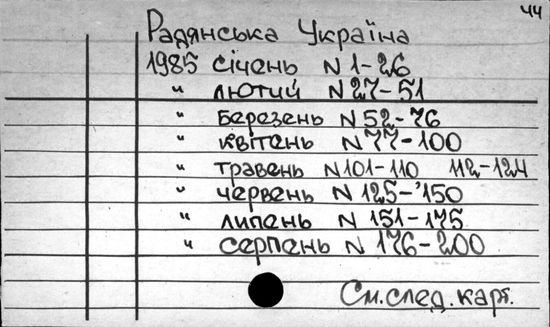 44
Радянська Україна
1985 січень N 1-26
" лютий N 27-51
" березень N 52-76
" квітень N 77-100
" травень N 101-110 112-124
" червень N 125-150
" липень N 151-175
" серпень N 176-200
См. след. карт.